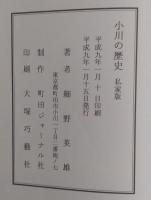 小川の歴史 私家版
平成九年一月 十日印刷
平成九年一月十五日発行
著者 細野英雄
東京都町田市小川一丁目三番地ノ七
制作 町田ジャーナル社
印刷 大塚巧藝社